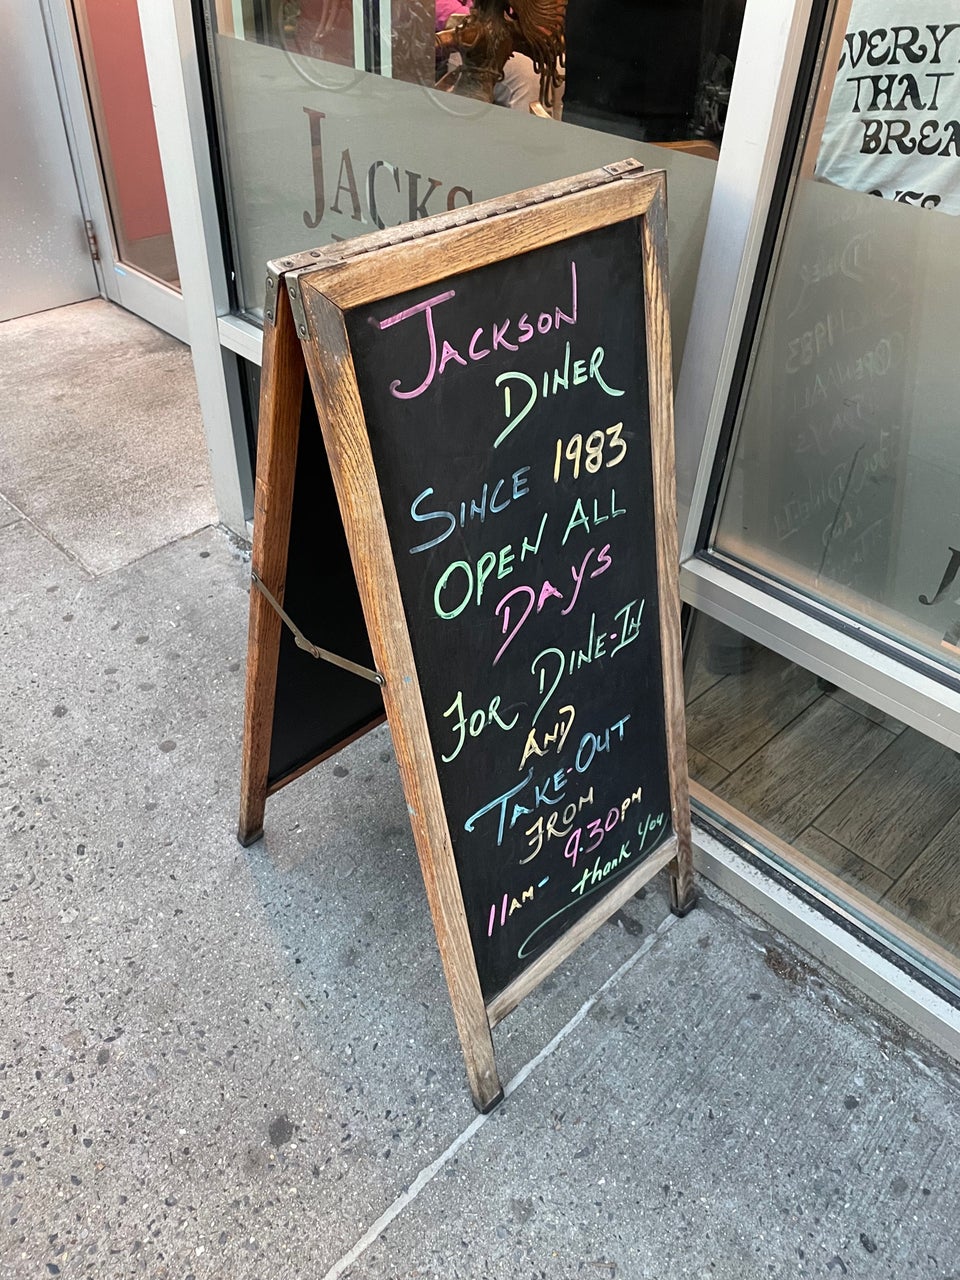 JACKSON
DINER
SINCE 1983
OPEN ALL
DAYS
FOR DINE-IN
AND
TAKE-OUT
FROM
11AM- 9.30PM
thank you
JACKS
VERY
THAT
BREA